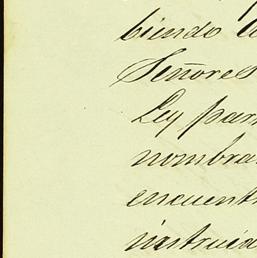 biendo
Señores
Ley par
nombra
encuent
instruid